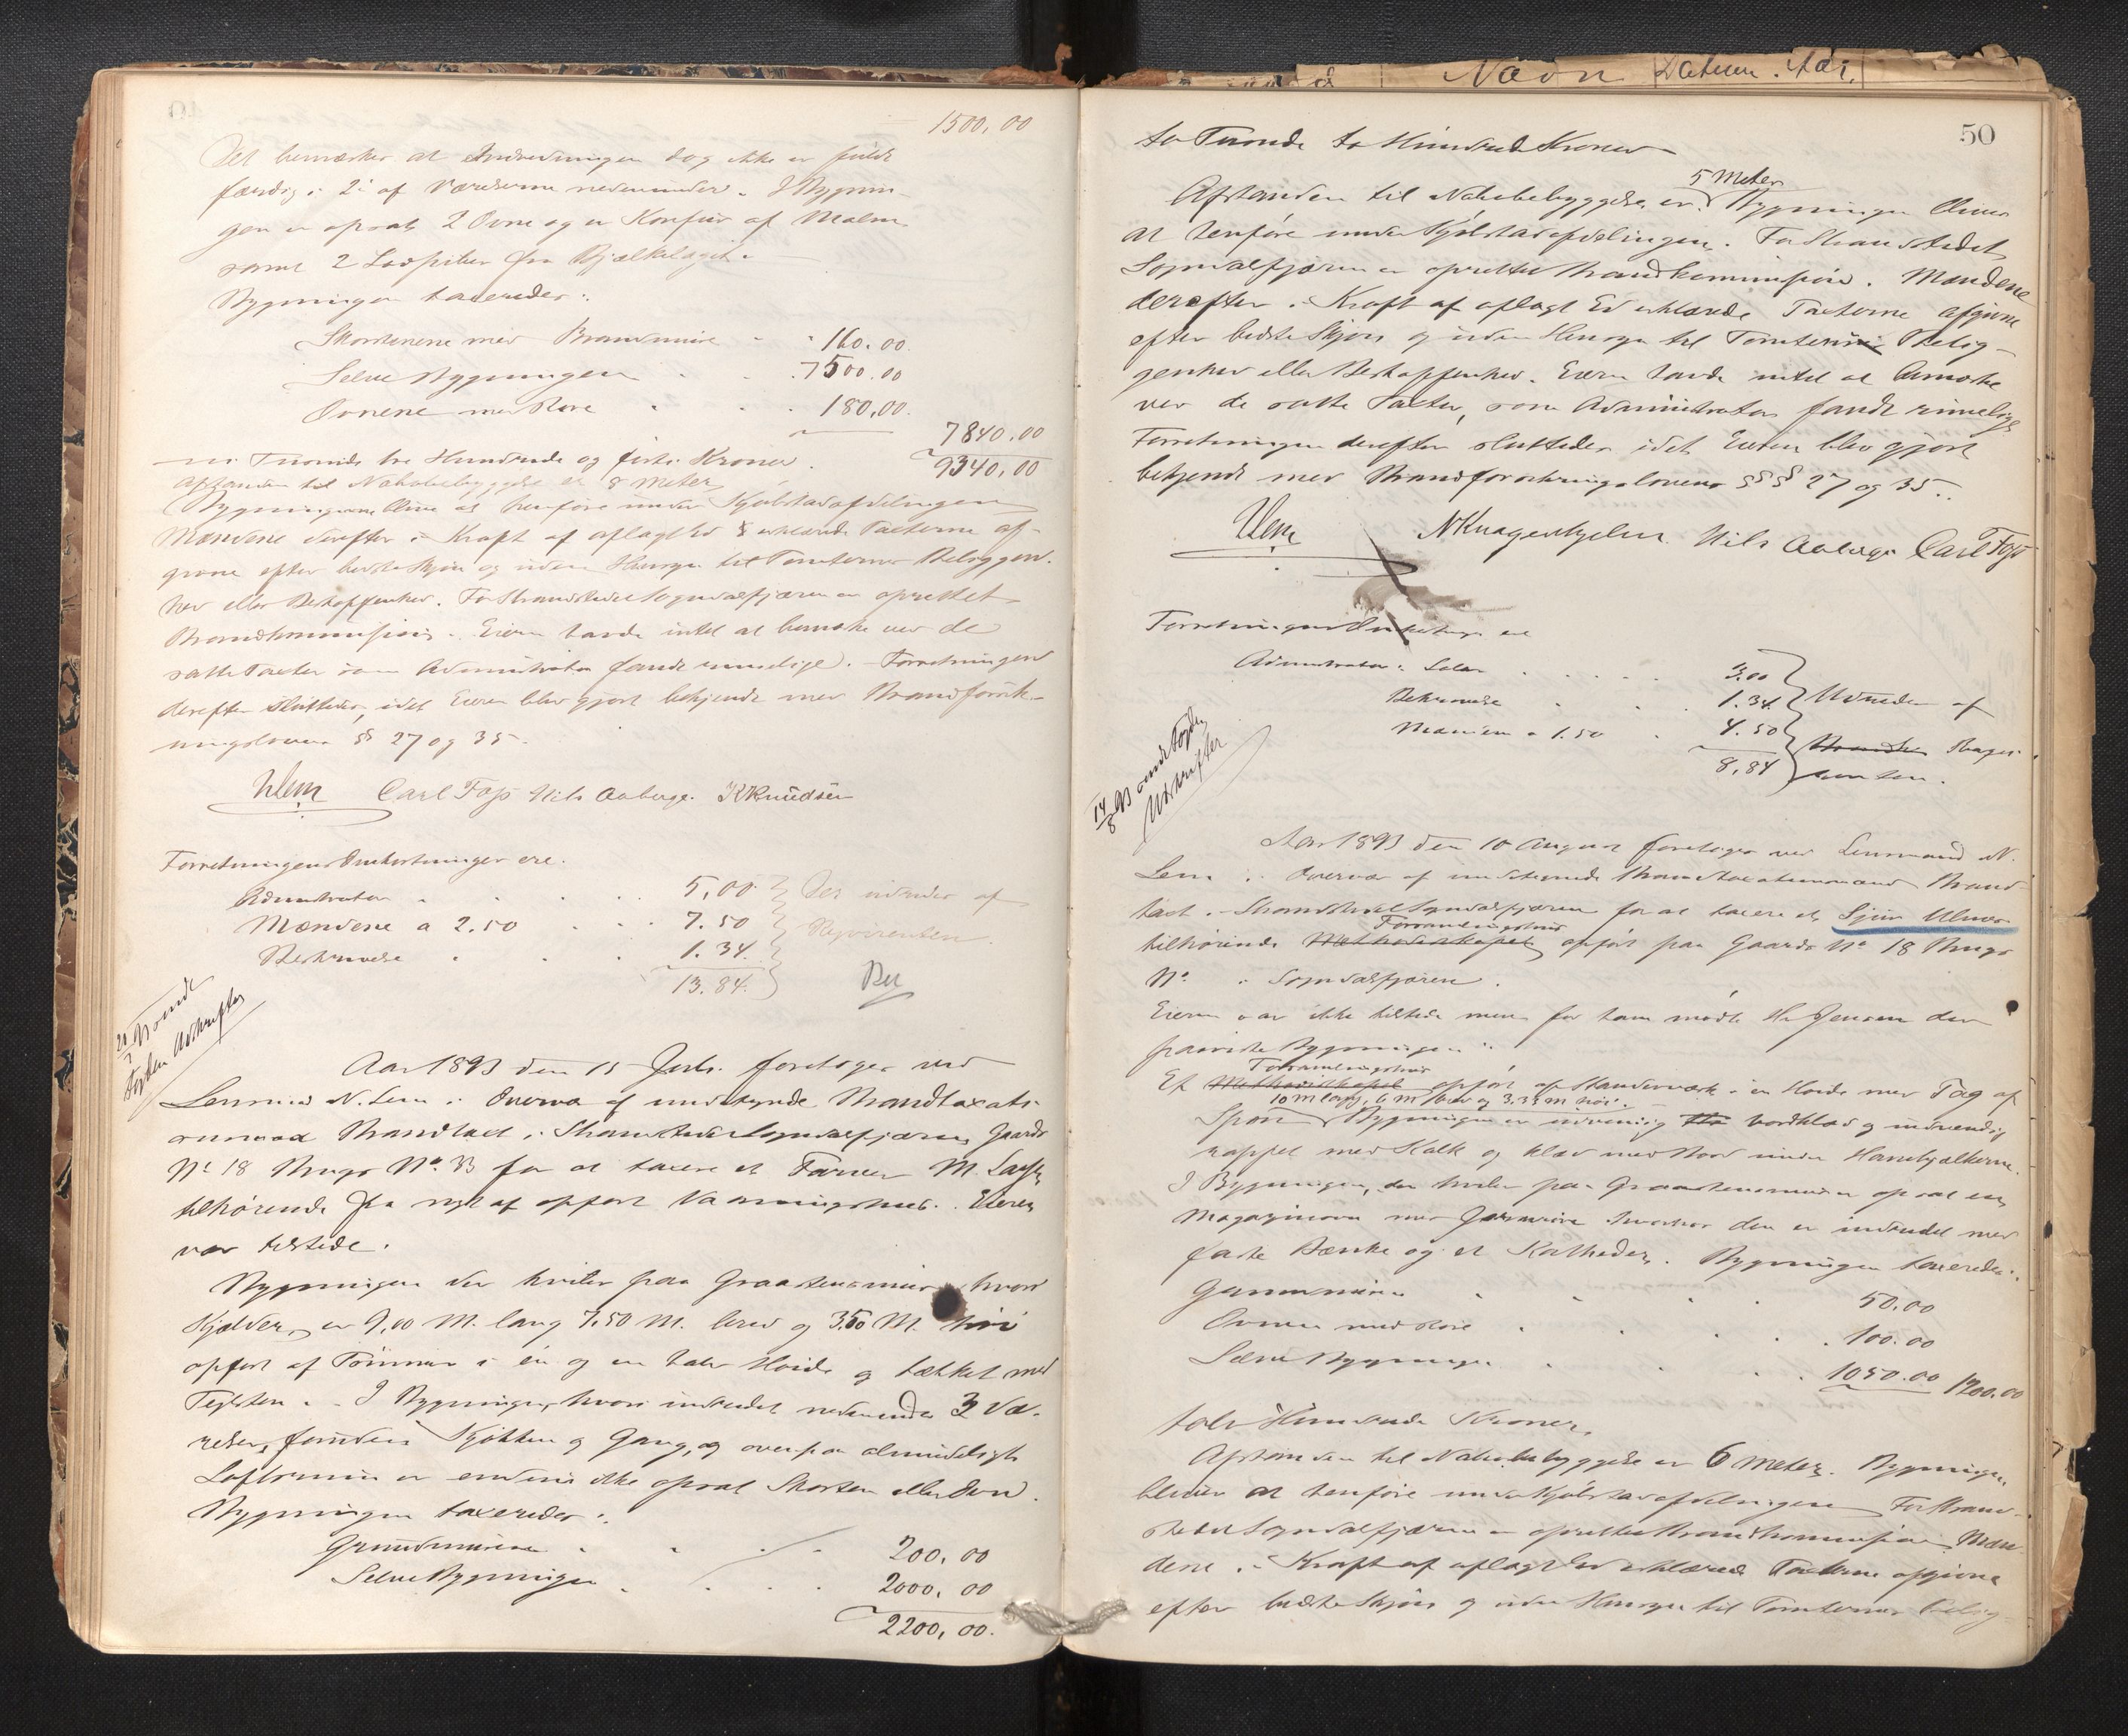 1500,00
Det bemærkes at Indredningen dog ikke er fuldt
færdig i 2 af Værelserne nedenunder. I Bygnin-
gen er opsat 2 Ovne og en Komfur af Malm
samt 2 Lodpiber fra Bjælkelaget.
Bygningen taxeredes:
Skorstenene med Brandmure 160.00
Selve Bygningen 7500.00
Ovnene med Rore 180,00
7840,00
ni Tusinde tre Hundrede og firti Kroner. 9340,00
Afstanden til Nabobebyggelse er 8 Meter
Bygningerne blive at henføre under Kjøbstadafdelingen
Mændene derefter i Kraft af aflagt Ed erklærede Taxterne af-
givne efter bedste Skjøn og uden Hensyn til Tomternes Beliggen-
hed eller Beskaffenhed. For Strandstedet Sogndalsfjæren er oprettet
Brandkommission. Eieren havde intet at bemærke ved de
satte Taxter som Administrator fandt rimelige. Forretningen
derefter sluttedes, idet Eieren blev gjort bekjendt med Brandforsik-
ringslovens §§ 27 og 35.
NLem Carl Foss Nils Aaberge. K Knudsen
Forretningens Omkostninger ere:
Administrator 5,00
Mændene a 2.50 7.50
Beskrivelse 1.34
13.84
Det udredes af
Nyvirenten
Bet
Aar 1893 den 15 Juli foretoges ved
Lensmand N. Lem i Overvær af undertegnede Brandtaxati-
onsmænd Brandtaxt i Strandstedet Sogndalsfjæren, Gaards
No 18 Brugs No 33 for at taxere et Farver M. Larsen
tilhørende fra nyt af opført Vaaningshus. Eieren
var tilstede.
Bygningen der hviler paa Graastensmur hvori
Kjælder, er 9,00 M. lang 7.50 M. bred og 3.50 M. høi
opført af Tømmer i én og en halv Høide og tækket med
Teglsten. I Bygningen, hvori indredet nedenunder 3 Væ-
relser, foruden Kjøkken og Gang, og ovenpaa almindeligt
Loftsrum er endnu ikke opsat Skorsten eller Ovn.
Bygningen taxeredes:
Grundmuren 200,00
Selve Bygningen 2000,00
2200,00.
50
to Tusinde to Hundrede Kroner
5 Meter
Afstanden til Nabobebyggelse er. Bygningen bliver
at henføre under Kjøbstadafdelingen. For Strandstedet
Sogndalsfjæren er oprettet Brandkommission. Mændene
derefter i Kraft af aflagt Ed erklærede Taxterne afgivne
efter bedste Skjøn og uden Hensyn til Tomternes Belig-
genhed eller Beskaffenhed. Eieren havde intet at bemærke
ved de satte Taxter, som Administrator fandt rimelige
Forretningen derefter sluttedes idet Eieren blev gjort
bekjendt med Brandforsikringslovens §§§ 27 og 35.
NLem Nils Aaberge Carl Foss
Administrator i Salær 3.00
Beskrivelse 1.34
Mændene a 1.50 4.50
8,84
Udredes af
14/8 93 omdestoges
Udskrifter
Aar 1893 den 10 August foretoges ved Lensmand N.
Lem i Overvær af undertegnede Brandtaxationsmænd Brand-
taxt i Strandstedet Sogndalsfjæren for at taxere et Sjur Ulvæs
Forsamlingshus
tilhørende opført paa Gaards No 18 Brugs
No i Sogndalsfjæren.
Eieren var ikke tilstede men for ham mødte H. Jensen der
paaviste Bygningen.
Forsamlingshus
Et opført af Standerværk i en Høide med Tag af
10 m lang, 6 m bred og 3.33 m høi.
Spon. Bygningen er udvendig bordklæd og indvendig
rappet med Kalk og klæd med Bord under Hanebjælkerne.
I Bygningen, der hviler paa Graastensmur er opsat en
Magazinovn med hvorhos den er indredet med
faste Bænke og et Katheder. Bygningen taxeredes:
50.00
Ovnen med Rore 100.00
Selve Bygningen 1050.00 1200.00
tolv Hundrede Kroner.
Afstanden til Nabobebyggelse er 6 Meter. Bygningen
bliver at henføre under Kjøbstadafdelingen For Strand-
stedet Sogndalsfjæren er oprettet Brandkommission. Mæn-
dene i Kraft af aflagt Ed erklærede Taxterne afgivne
efter bedste Skjøn og uden Hensyn til Tomternes Belig-